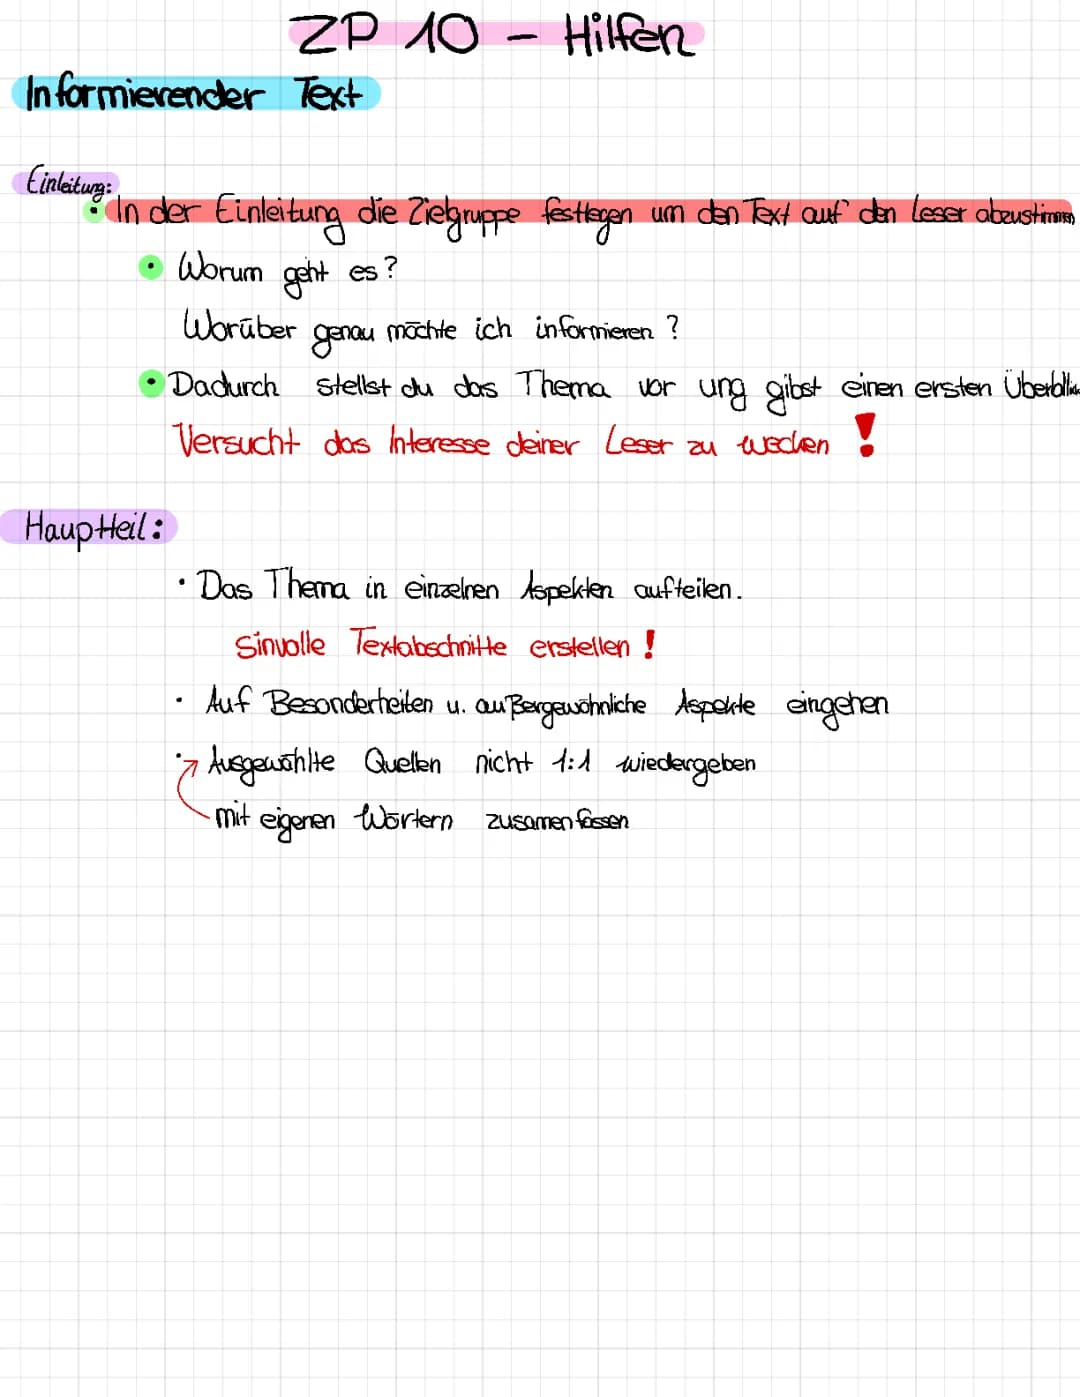 ZP 10 - Hilfen
Informierender Text
Einleitung:
• In der Einleitung die Zielgruppe festlegen um den Text auf den Leser abzustimmen
• Worum geht es?
Worüber genau möchte ich informieren ?
• Dadurch stellst du das Thema vor ung gibst einen ersten Überblick
Versucht das Interesse deiner Leser zu wecken !
Hauptteil:
• Das Thema in einzelnen Aspekten aufteilen.
Sinvolle Textabschnitte erstellen !
• Auf Besonderheiten u. außergewöhnliche Aspekte eingehen
• Ausgewählte Quellen nicht 1:1 wiedergeben
mit eigenen Wörtern zusamenfassen